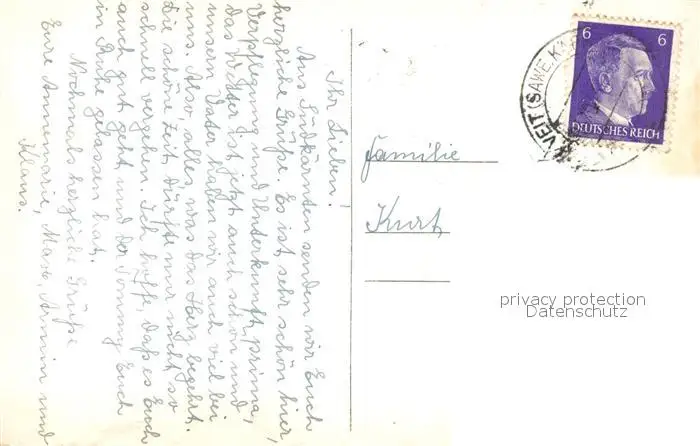 Ihr Lieben!
Aus Südkärnten senden wir Euch
herzliche Grüße. Es ist sehr schön hier,
Verpflegung und Unterkunft prima,
das Wetter ist jetzt auch schön und
unsern Vater haben wir auch viel bei
uns. Also, alles was das Herz begehrt.
Die schöne Zeit dürfte nur nicht so
schnell vergehen. Ich hoffe, daß es Euch
auch gut geht und der Tommy Euch
in Ruhe gelassen hat.
Nochmals herzliche Grüße
Eure Annemarie, Maxe, Armin und
Klaus.
Familie
Kurt
6 6
DEUTSCHES REICH
VEIT (SAWE, K
privacy protection
Datenschutz